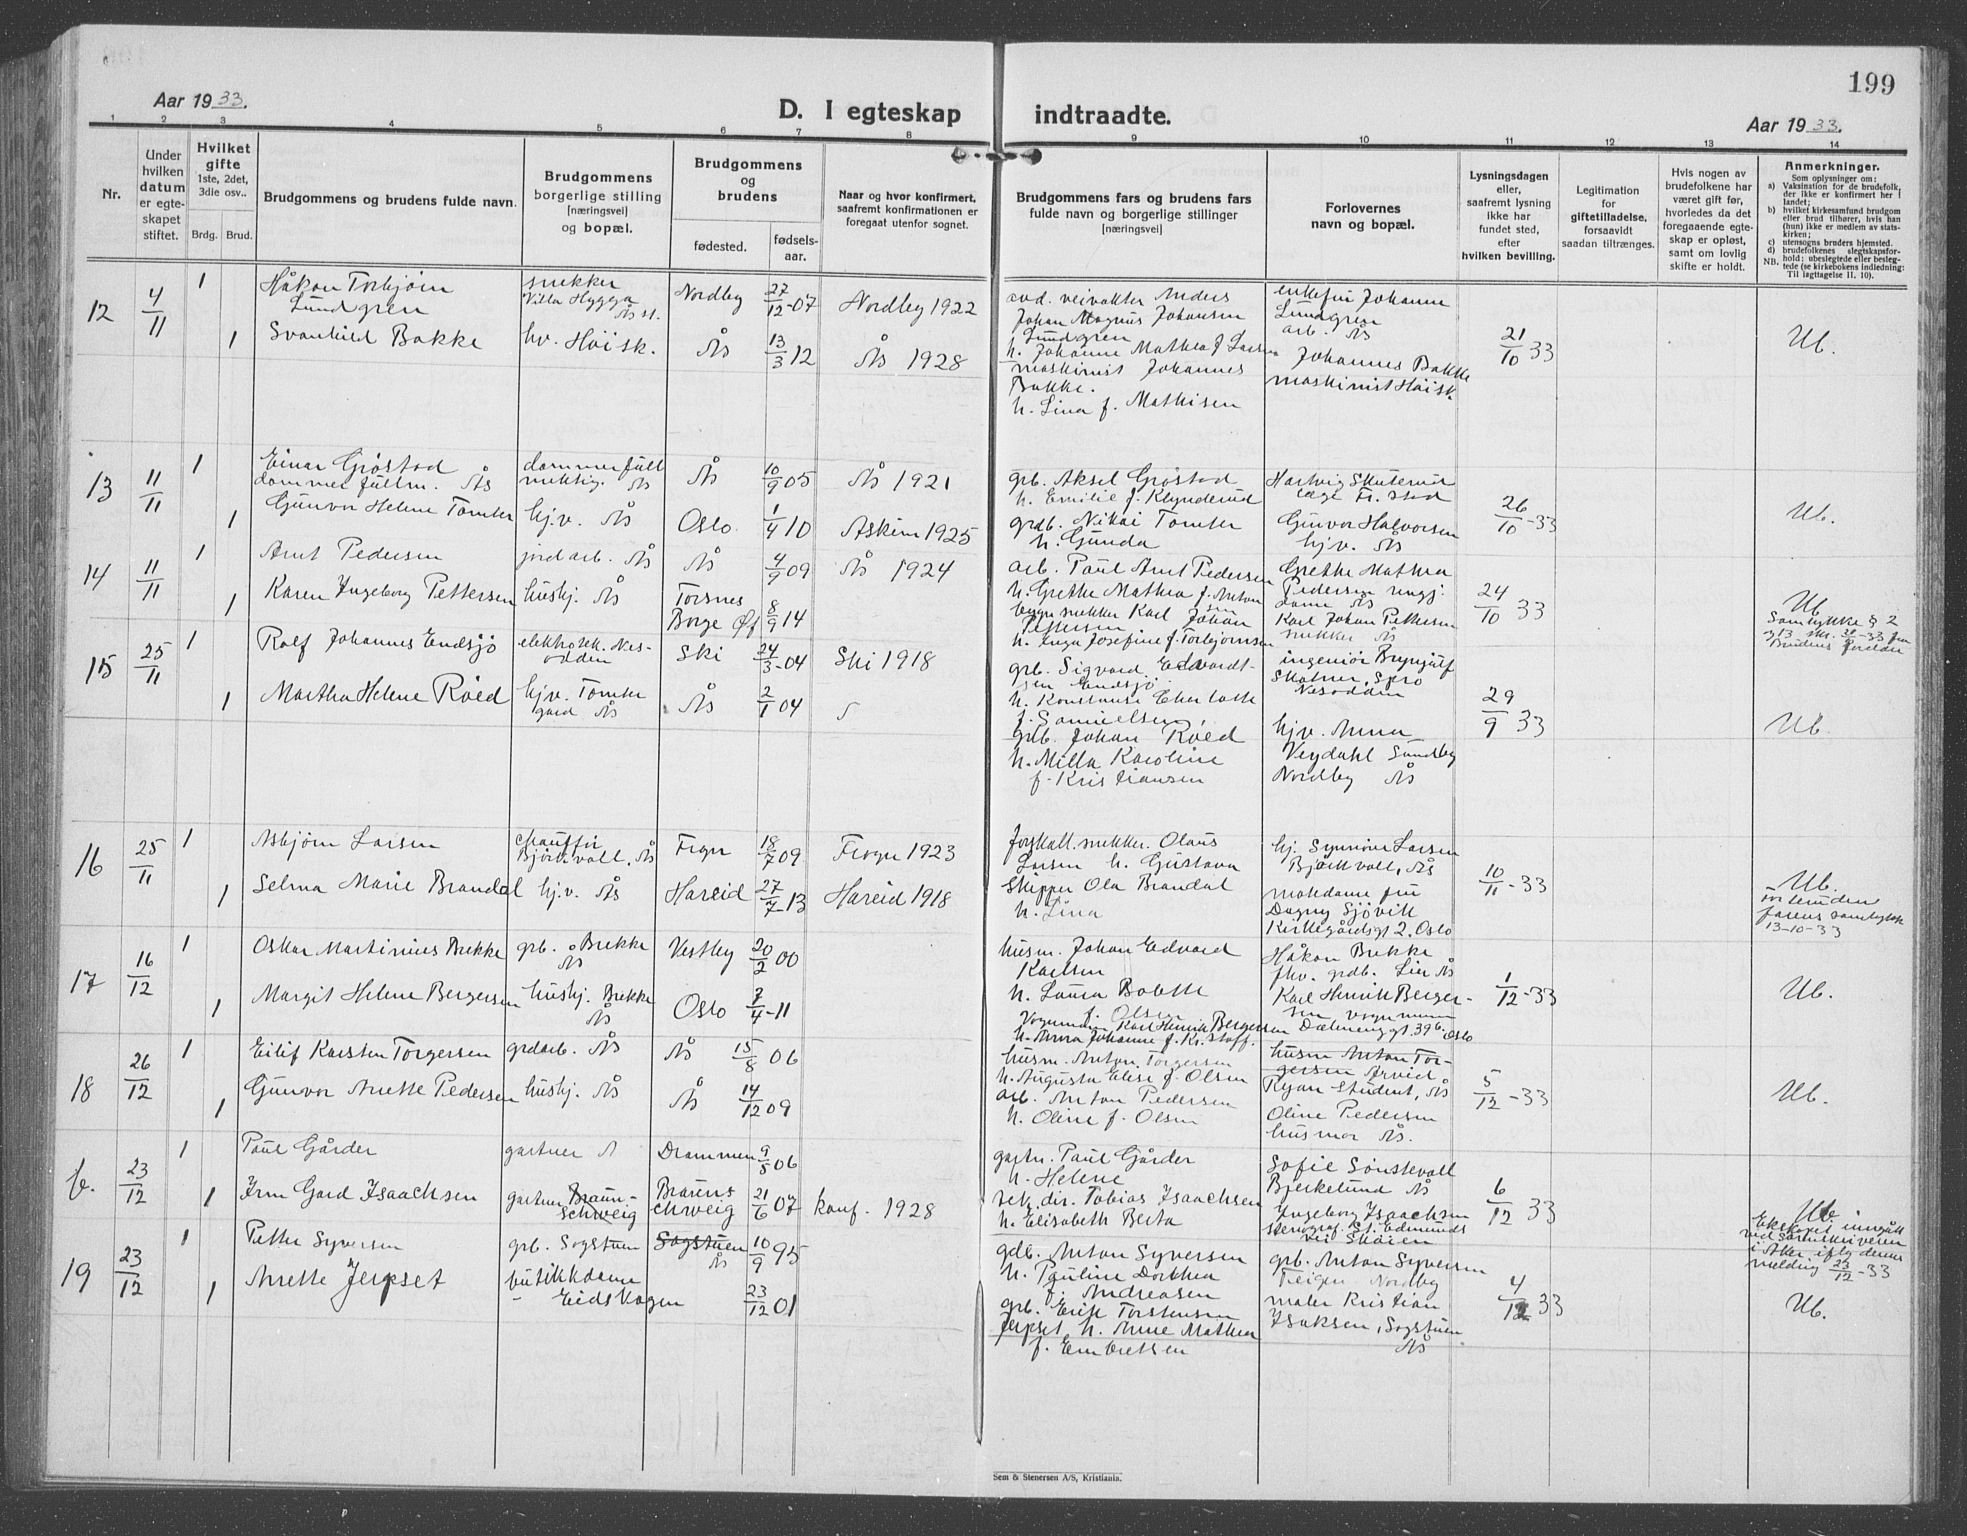 199
Aar 1933.
D. I egteskap indtraadte.
Aar 1933.
1 2 3 4 5 6 7 8 9 10 11 12 13 14
Nr.
Under hvilken datum er egteskapet stiftet.
Hvilket gifte 1ste, 2det, 3die osv..
Brdg. Brud.
Brudgommens og brudens fulde navn.
Brudgommens borgerlige stilling [næringsvei] og bopæl.
Brudgommens og brudens
fødested.
fødselsaar.
Naar og hvor konfirmert, saafremt konfirmationen er foregaat utenfor sognet.
Brudgommens fars og brudens fars fulde navn og borgerlige stillinger [næringsvei]
Forlovernes navn og bopæl.
Lysningsdagen eller, saafremt lysning ikke har fundet sted, efter hvilken bevilling.
Legitimation for giftetilladelse, forsaavidt saadan tiltrænges.
Hvis nogen av brudefolkene har været gift før, hvorledes da det foregaaende egteskap er opløst, samt om lovlig skifte er holdt.
Anmerkninger.
Som oplysninger om:
a) Vaksination for de brudefolk, der ikke er konfirmert her i landet;
b) hvilket kirkesamfund brudgom eller brud tilhører, hvis han (hun) ikke er medlem av statskirken;
c) utensogns bruders hjemsted.
d) brudefolkenes slegtskapsforhold: ubeslegtede eller beslegtede (se kirkebokens indledning: Til Iagttagelse II, 10).
NB.
12 4/11 1 Håkon Torbjørn Lundgren
snekker Villa Hygga Ås st.
Nordby 27/12-07 Nordby 1922
avd. veivokter Anders Johan Magnus Johansen Lundgren
h. Johanne Mathea f Larsen
enkefru Johanne Lundgren arb. Ås
21/10 33 Ub.
1 Svanhild Bakke hv. Høisk. Ås 13/3 12 Ås 1928
maskinist Johannes Bakke.
h. Lina f. Mathisen
Johannes Bakke maskinist Høisk.
13 11/11 1 Einar Grøstad dommerfullm. Ås
dommerfullmektig. Ås
Ås 10/9 05 Ås 1921
grb. Aksel Grøstad
h. Emilie f. Klynderud
Hartvig Skuterud læge Fr. stad
26/10-33 Ub.
1 Gunvor Helene Tomter hj.v. Ås Oslo. 1/4 10 Askim 1925
grdb. Nikai Tomter
h. Gunda
Gunvor Halvorsen hjv. Ås
14 11/11 1 Arnt Pedersen jordarb. Ås Ås 4/9 09 Ås 1924
arb. Paul Arnt Pedersen
h. Grethe Mathea f. Antonsen
Grethe Mathea Pedersen
24/10 33
Ub
Samtykke § 2
1 Karen Ingeborg Pettersen hushj. Ås Torsnes Borge Øf 8/9 14
bygn.snekker Karl Johan Pettersen
h. Inga Josefine f. Torbjørnsen
Karl Johan Pettersen snekker Ås
15 25/11 1 Rolf Johannes Endsjø elektrotek. Nesodden Ski 24/3-04 Ski 1918
grb. Sigvard Edvardtsen Endsjø
f. Samuelsen
ingeniør Brynjulf
Nesodden
29/9 33 Ub.
1 Martha Helene Røed hjv. Tomter gård Ås Ås 2/1 04
grb. Johan Røed
h. Milla Karoline f. Kristiansen
hjv. Anna
Nordby Ås
16 25/11 1 Asbjørn Larsen chauffør Bjørkvall, Ås Frogn 18/7 09 Frogn 1923
forskall. snekker. Olaus Larsen h. Gustava
hj. Synnøve Larsen Bjørkvall, Ås
10/11-33
Ub.
farens samtykke
13-10-33
1 Selma Marie Brandal hj.v. Ås Hareid 27/7-13 Hareid 1918
Skipper Ola Brandal
h. Lina
matdame fru Dagny Sjøvik Kirkegårdsgt 2. Oslo
17 16/12 1 Oskar Martinius Brekke grb. Brekke Ås Vestby 20/2 00
husm. Johan Edvard Karlsen
h. Laura Bolette f. Olsen
Håkon Brekke fhv. grdb. Lier Ås
1/12-33 Ub.
1 Margit Helene Bergersen hushj. Brekke Ås Oslo 7/4-11
Vognmann Karl Henrik Bergersen
h. Anna Johanne f. Kristoff.
Karl Henrik Bergersen vognmann Dælenenggt. 39b. Oslo
18 26/12 1 Eilif Karsten Torgersen grdarb. Ås Ås 15/8 06
husm. Anton Torgersen
h. Augusta Elise f. Olsen
husm Anton Torgersen Arvid Ryan Student, Ås
5/12-33 Ub.
1 Gunvor Anette Pedersen hushj. Ås Ås 14/12 09
arb. Anton Pedersen
h. Oline f. Olsen
Oline Pedersen husmor Ås.
b. 23/12 1 Paul Gårder gartner Drammen 9/5 06
gartn. Paul Gårder
h. Helene
Sofie Sønstevoll Bjerkelund Ås
6/12 33
Ub.
Ekteskapet inngått ved sorenskriveren i Aker iflg denne melding 23/12-33
1 Irm Gard Isaachsen gartner Braunschweig Braunschweig 21/6 07 konf. 1928
rek. dir. Tobias Isaachsen
h. Elisabeth Berta
Ingeborg Isaachsen stenograf
19 23/12 1 Petter Syversen grb. Sogstuen Sogstuen Ås 10/9 95
gdb. Anton Syversen
h. Pauline Dorthea f. Andreasen
grb. Anton Syversen Teigen Nordby
4/12 33 Ub.
1 Anette Jerpset butikkdame Eidskogen 23/12 01
grb. Erik Torstensen Jerpset h. Anne Mathea f. Embretsen
maler Kristian Isaksen, Sogstuen Ås
Sem & Stenersen A/S, Kristiania.